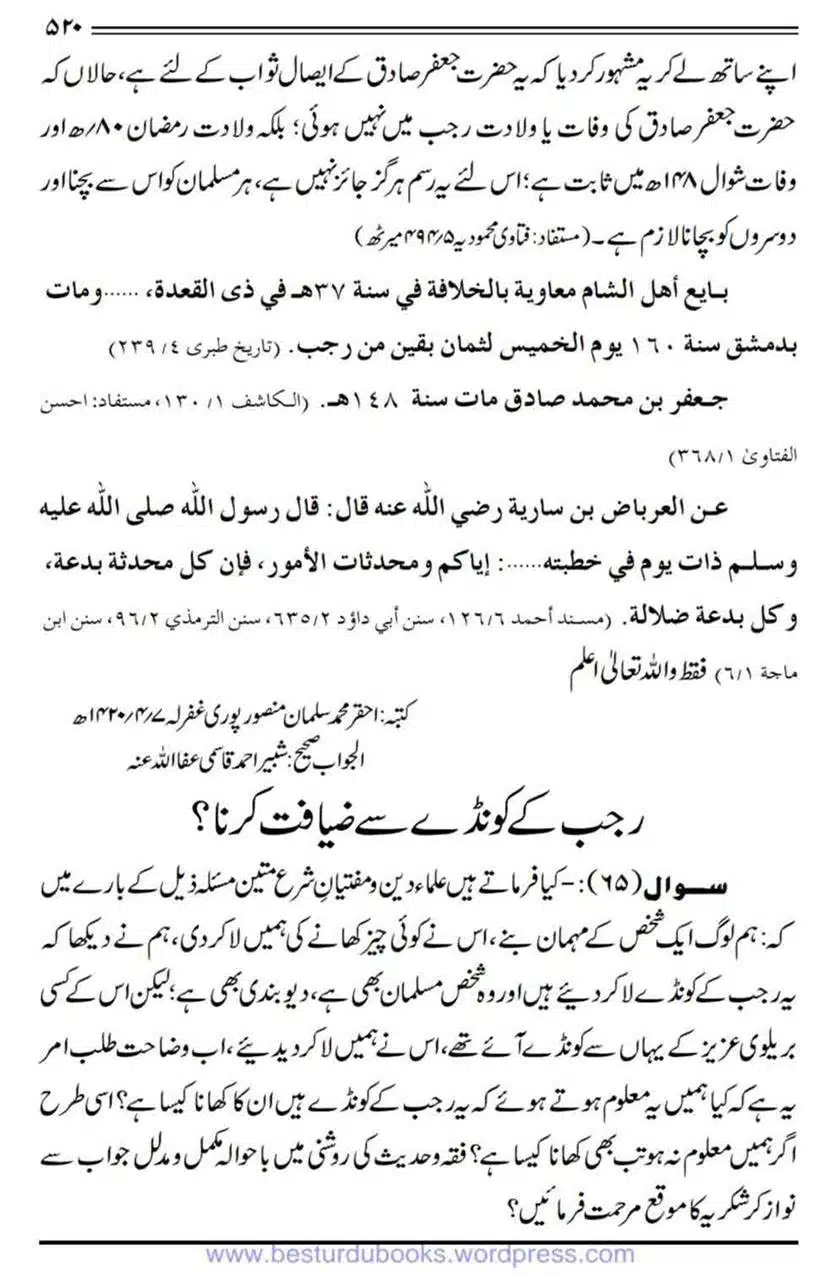 ۵۲۰
اپنے ساتھ لے کر یہ مشہور کردیا کہ یہ حضرت جعفر صادق کے ایصال ثواب کے لئے ہے، حالاں کہ
حضرت جعفر صادق کی وفات یا ولادت رجب میں نہیں ہوئی؛ بلکہ ولادت رمضان ۸۰ھ/ اور
وفات شوال ۱۴۸ھ میں ثابت ہے؛ اس لئے یہ رسم ہرگز جائز نہیں ہے، ہر مسلمان کو اس سے بچنا اور
دوسروں کو بچانا لازم ہے۔ (مستفاد: فتاوی محمودیہ ۴۹۴/۵ میرٹھ)
بایع أهل الشام معاویة بالخلافة في سنة ۳۷هـ في ذی القعدة، ......ومات
بدمشق سنة ١٦٠ یوم الخمیس لثمان بقین من رجب. (تاریخ طبری ٤/ ۲۳۹)
جعفر بن محمد صادق مات سنة ١٤٨هـ. (الکاشف ۱/ ۱۳۰، مستفاد: احسن
الفتاویٰ ۳٦۸/۱)
عن العرباض بن ساریة رضي الله عنه قال: قال رسول الله صلی الله علیه
وسلم ذات یوم في خطبته......: إیاکم ومحدثات الأمور، فإن کل محدثة بدعة،
وکل بدعة ضلالة. (مسند أحمد ۱۲٦/٦، سنن أبي داؤد ٦۳۵/۲، سنن الترمذي ۹٦/۲، سنن ابن
ماجة ٦/۱) فقط واللہ تعالیٰ اعلم
کتبہ: احقر محمد سلمان منصورپوری غفرلہ ۱۴۲۰/۴/۷ھ
الجواب صحیح: شبیر احمد قاسمی عفا اللہ عنہ
رجب کے کونڈے سے ضیافت کرنا؟
سوال (۶۵):- کیا فرماتے ہیں علماء دین ومفتیانِ شرع متین مسئلہ ذیل کے بارے میں
کہ: ہم لوگ ایک شخص کے مہمان بنے، اس نے کوئی چیز کھانے کی ہمیں لاکر دی، ہم نے دیکھا کہ
یہ رجب کے کونڈے لاکر دیئے ہیں اور وہ شخص مسلمان بھی ہے، دیوبندی بھی ہے؛ لیکن اس کے کسی
بریلوی عزیز کے یہاں سے کونڈے آئے تھے، اس نے ہمیں لاکر دیدیئے، اب وضاحت طلب امر
یہ ہے کہ کیا ہمیں یہ معلوم ہوتے ہوئے کہ یہ رجب کے کونڈے ہیں ان کا کھانا کیسا ہے؟ اسی طرح
اگر ہمیں معلوم نہ ہو تب بھی کھانا کیسا ہے؟ فقہ وحدیث کی روشنی میں باحوالہ مکمل ومدلل جواب سے
نواز کر شکریہ کا موقع مرحمت فرمائیں؟
www.besturdubooks.wordpress.com